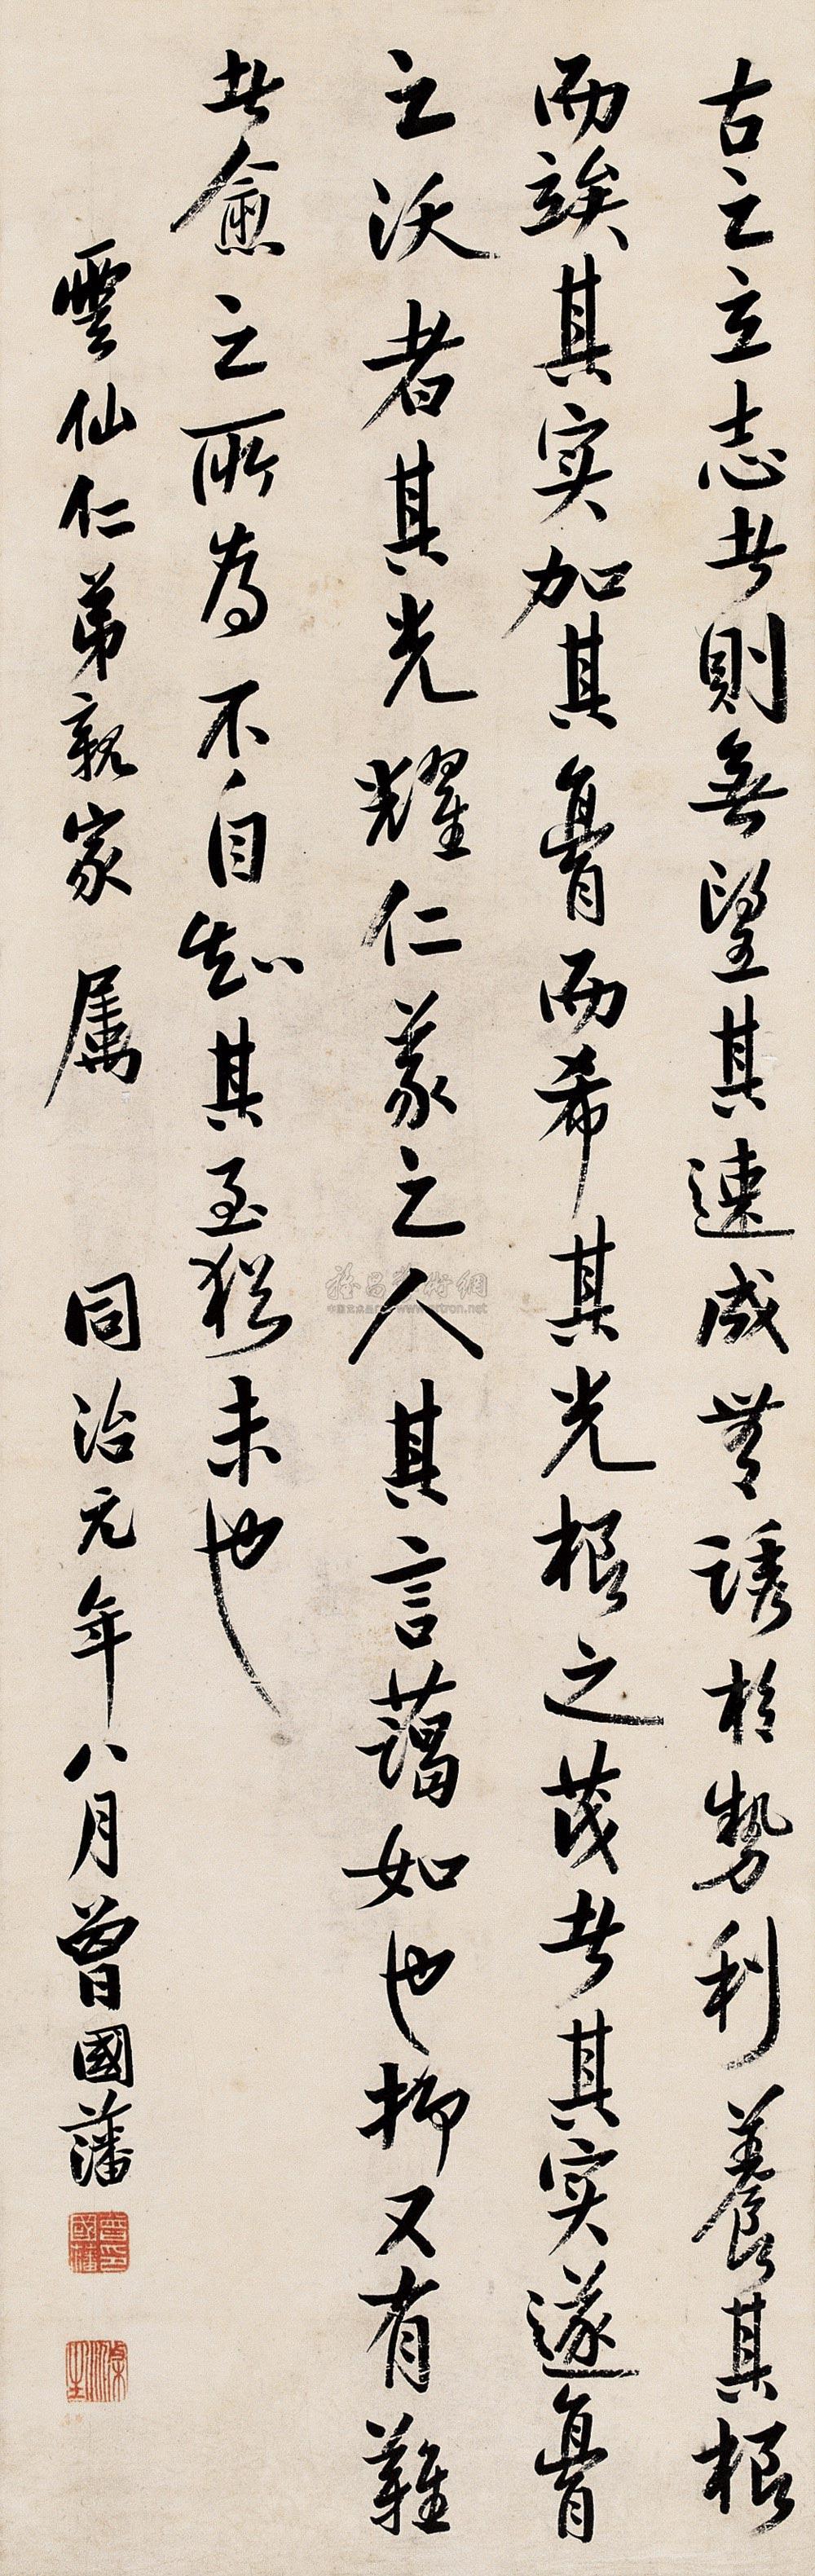 古之立志者則無望其速成無誘於勢利養其根
而竢其實加其膏而希其光根之茂者其實遂膏
之沃者其光耀仁義之人其言藹如也抑又有難
者愈之所為不自知其至猶未也
雲仙仁弟親家屬 同治元年八月曾國藩
雅昌藝術網
www.artron.net